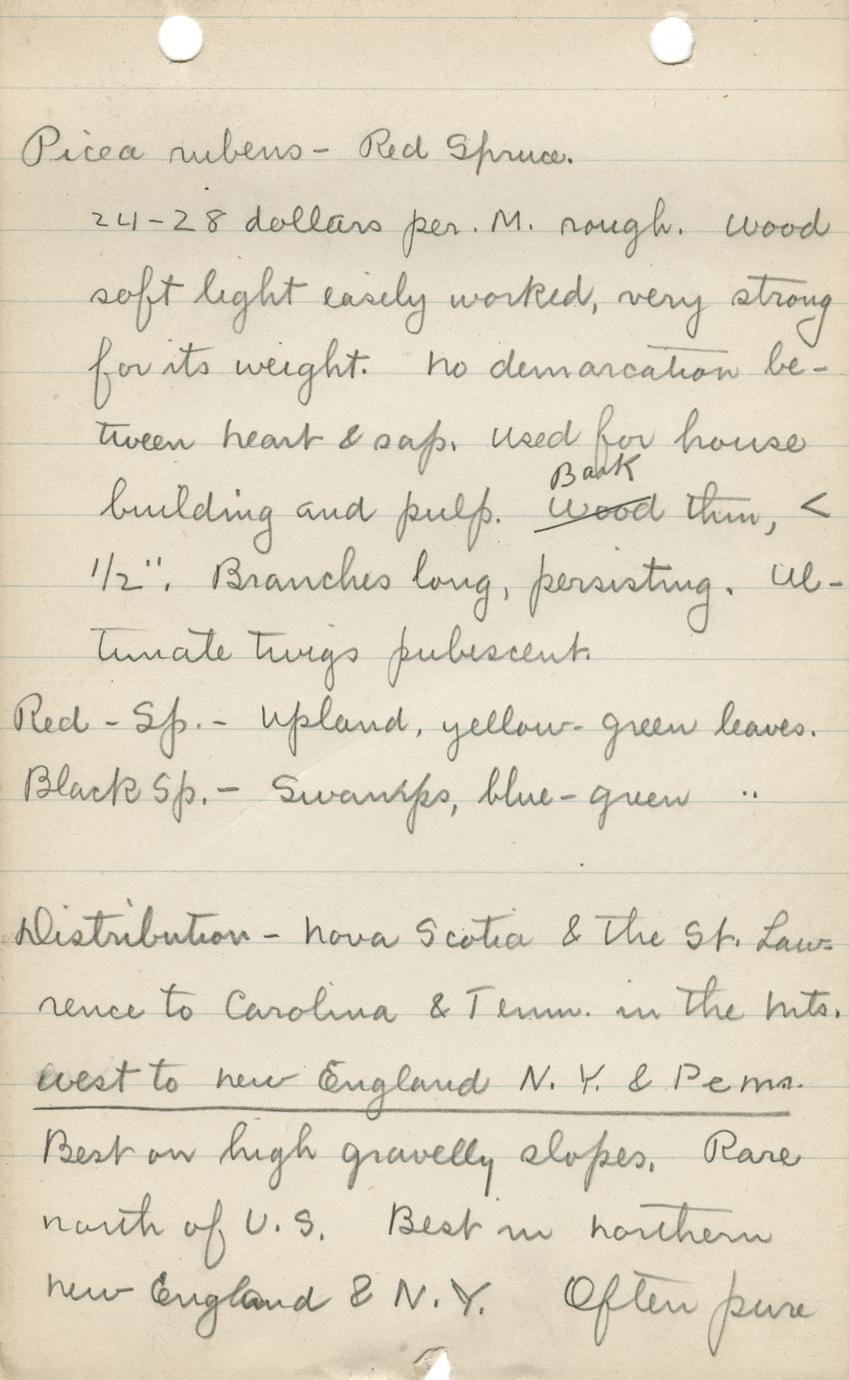 Picea rubens - Red Spruce.
24-28 dollars per. M. rough. Wood
soft light easily worked, very strong
for its weight. No demarcation be-
tween heart & sap. Used for house
building and pulp. ~~Wood~~ Bark thin, <
1/2". Branches long, persisting. Ul-
timate twigs pubescent.
Red - Sp. - Upland, yellow-green leaves.
Black Sp. - Swamps, blue-green "
Distribution - Nova Scotia & the St. Law=
rence to Carolina & Tenn. in the Mts.
west to New England N. Y. & Penn.
Best on high gravelly slopes. Rare
north of U. S. Best in northern
New England & N. Y. Often pure